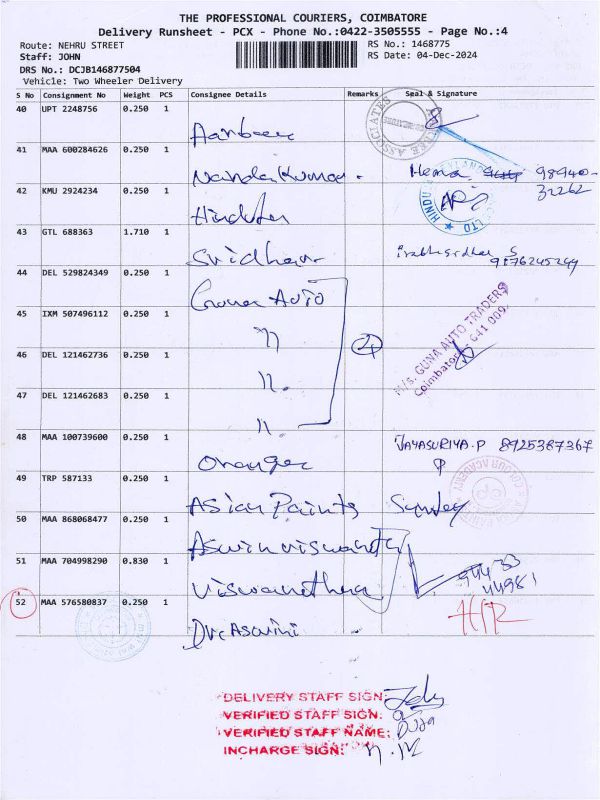 THE PROFESSIONAL COURIERS, COIMBATORE
Delivery Runsheet - PCX - Phone No.:0422-3505555 - Page No.:4
Route: NEHRU STREET RS No.: 1468775
Staff: JOHN RS Date: 04-Dec-2024
DRS No.: DCJB146877504
Vehicle: Two Wheeler Delivery
S No Consignment No Weight PCS Consignee Details Remarks Seal & Signature
40 UPT 2248756 0.250 1
41 MAA 600284626 0.250 1
Nandakumar. Hema 98940-
32262
42 KMU 2924234 0.250 1
HINDU
43 GTL 688363 1.710 1
Sridhar
9176245249
44 DEL 529824349 0.250 1
Guna Auto
45 IXM 507496112 0.250 1
"
M/s. GUNA AUTO TRADERS
Coimbatore - 641 009.
46 DEL 121462736 0.250 1
4
".
47 DEL 121462683 0.250 1
".
48 MAA 100739600 0.250 1
JAYASURIYA.P 8925387367
Oranger
49 TRP 587133 0.250 1
Asian Paints
COLOUR ACADEMY
50 MAA 868068477 0.250 1
51 MAA 704998290 0.830 1
94433
44981
52 MAA 576580837 0.250 1
Dr. Aswini
DELIVERY STAFF SIGN:
VERIFIED STAFF SIGN:
VERIFIED STAFF NAME:
INCHARGE SIGN: